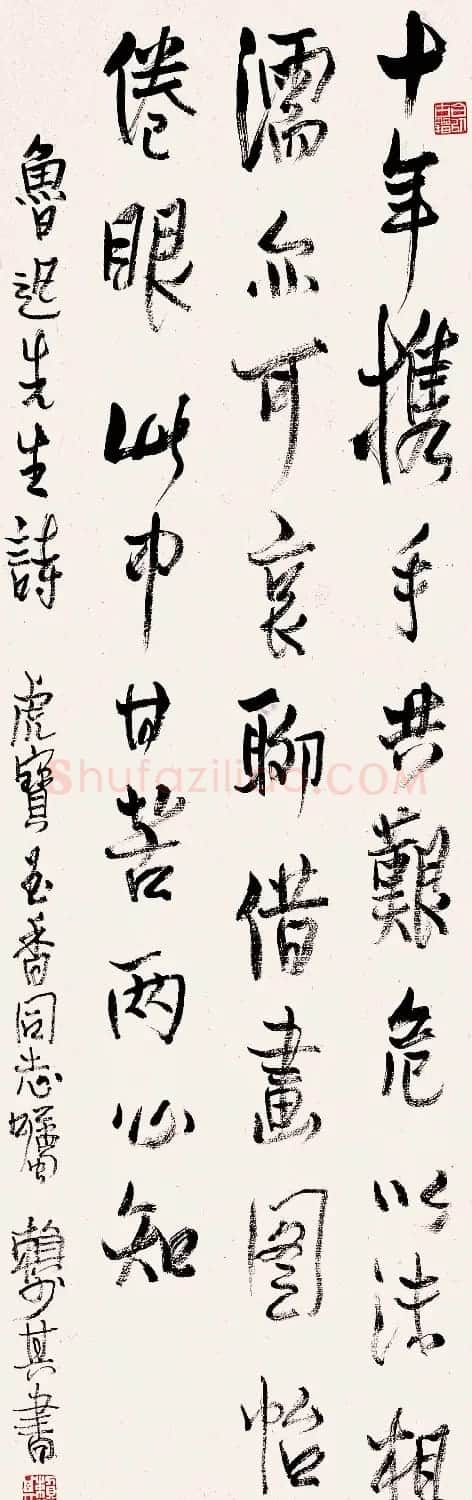 十年携手共艱危以沫相
濡亦可哀聊借畫圖怡
倦眼此中甘苦兩心知
魯迅先生詩 虎寶玉香同志囑 賴少其書
Shufaziliao.COM